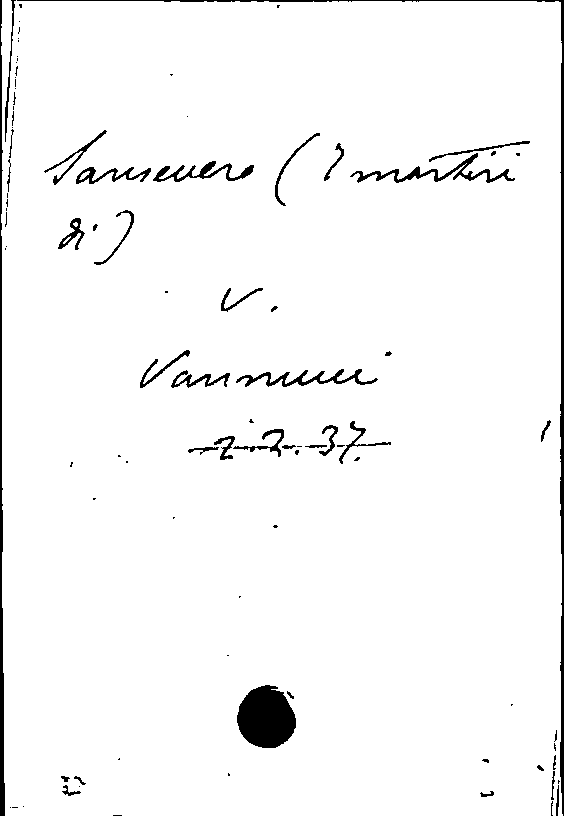 Sansevero (I martiri
di)
V.
Vannucci
2.2.37.